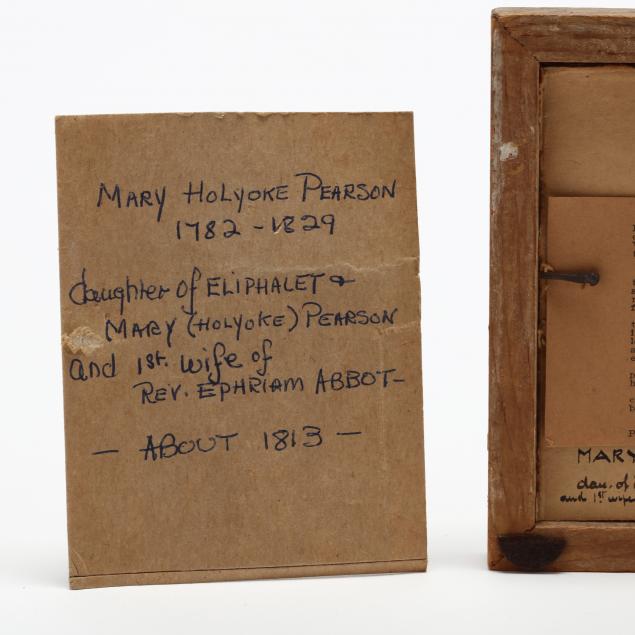 MARY HOLYOKE PEARSON
1782 - 1829
daughter of ELIPHALET &
MARY (HOLYOKE) PEARSON
and 1st. wife of
REV. EPHRIAM ABBOT-
- ABOUT 1813 -
MARY
dau. of
and 1st wife